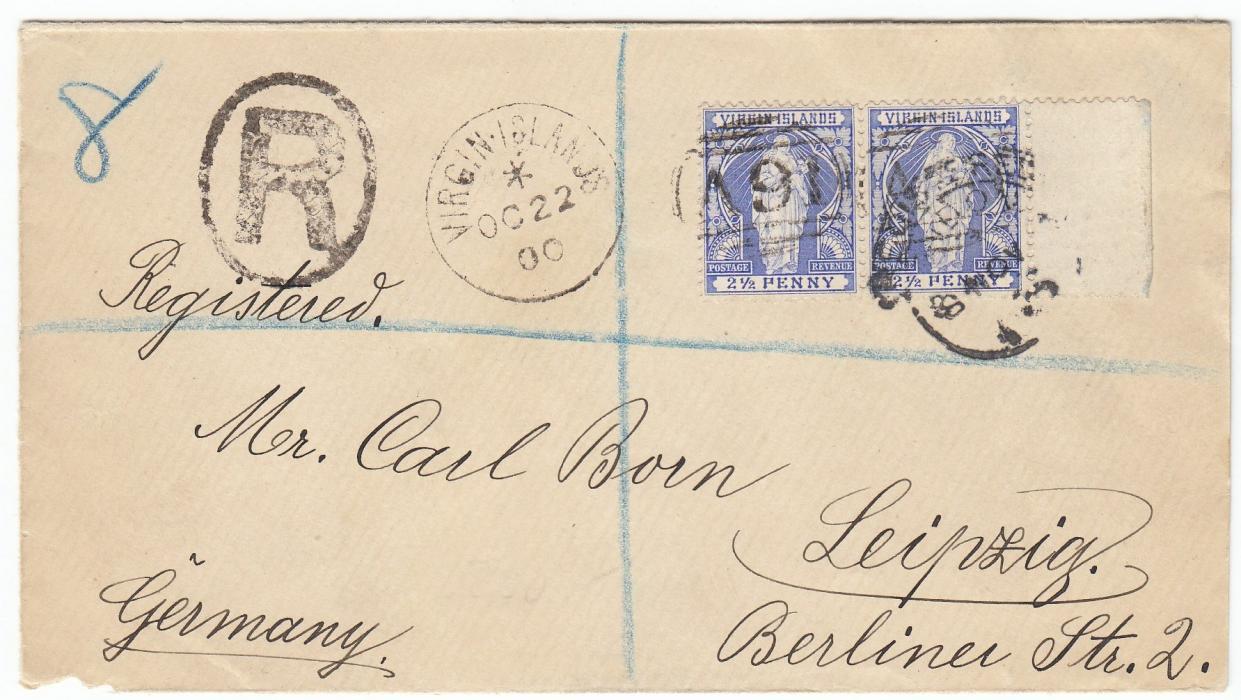 8
R
VIRGIN·ISLANDS
*
OC 22
00
VIRGIN ISLANDS
A91
POSTAGE REVENUE
2½ PENNY
VIRGIN ISLANDS
POSTAGE REVENUE
2½ PENNY
Registered.
Mr. Carl Born
Leipzig.
Germany.
Berliner Str. 2.